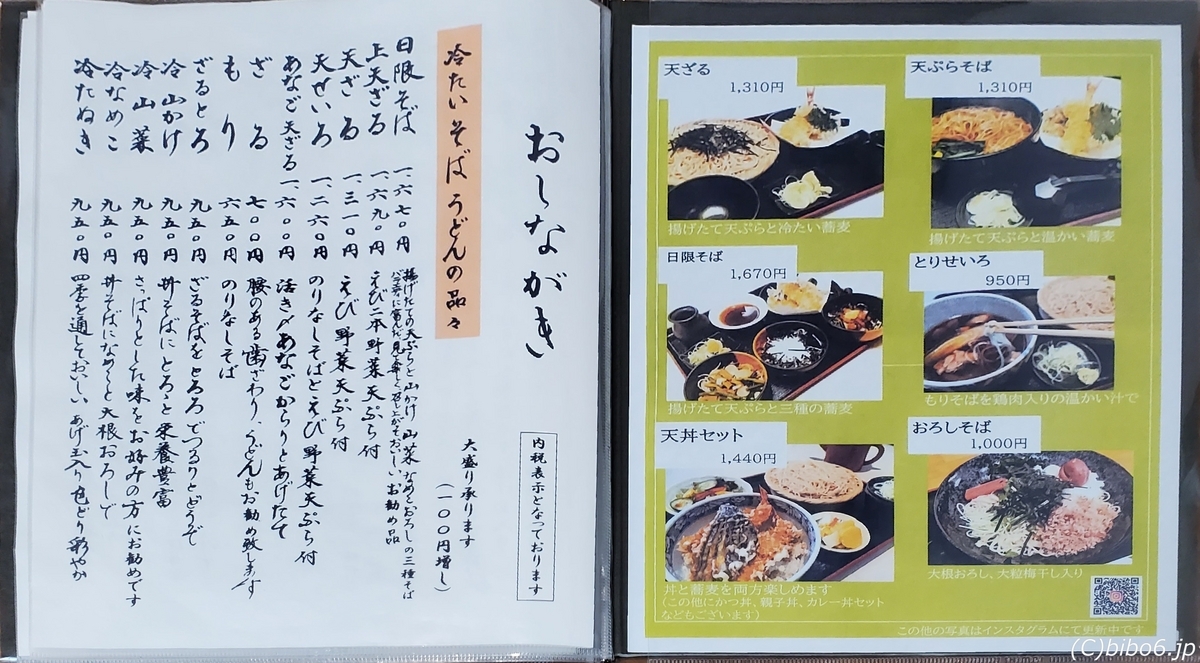 おしながき
内税表示となっております
大盛り承ります
(一〇〇円増し)
冷たいそばうどんの品々
日限そば 一、六七〇円 揚げたての天ぷらと山かけ、山菜、なめこおろしの三種そば
上天ざる 一、六九〇円 えび二本 野菜天ぷら付
天ざる 一、三一〇円 えび 野菜天ぷら付
天せいろ 一、二六〇円 のりなしそばとえび 野菜天ぷら付
あなご天ざる 一、六〇〇円 活き〆あなごからりとあげたて
ざる 七〇〇円 腰のある歯ざわり、うどんもお勧め致します
もり 六五〇円 のりなしそば
ざるとろ 九五〇円 ざるそばをとろろでつるりとどうぞ
冷山かけ 九五〇円 丼そばにとろろと栄養豊富
冷山菜 九五〇円 さっぱりとした味をお好みの方にお勧めです
冷なめこ 九五〇円 丼そばになめこと大根おろしで
冷たぬき 九五〇円 四季を通しておいしい、あげ玉入り色どり彩やか
天ざる
1,310円
揚げたて天ぷらと冷たい蕎麦
天ぷらそば
1,310円
揚げたて天ぷらと温かい蕎麦
日限そば
1,670円
揚げたて天ぷらと三種の蕎麦
とりせいろ
950円
もりそばを鶏肉入りの温かい汁で
天丼セット
1,440円
丼と蕎麦を両方楽しめます
(この他にかつ丼、親子丼、カレー丼セット
などもございます)
おろしそば
1,000円
大根おろし、大粒梅干し入り
この他の写真はインスタグラムにて更新中です
(C)bibo6.jp